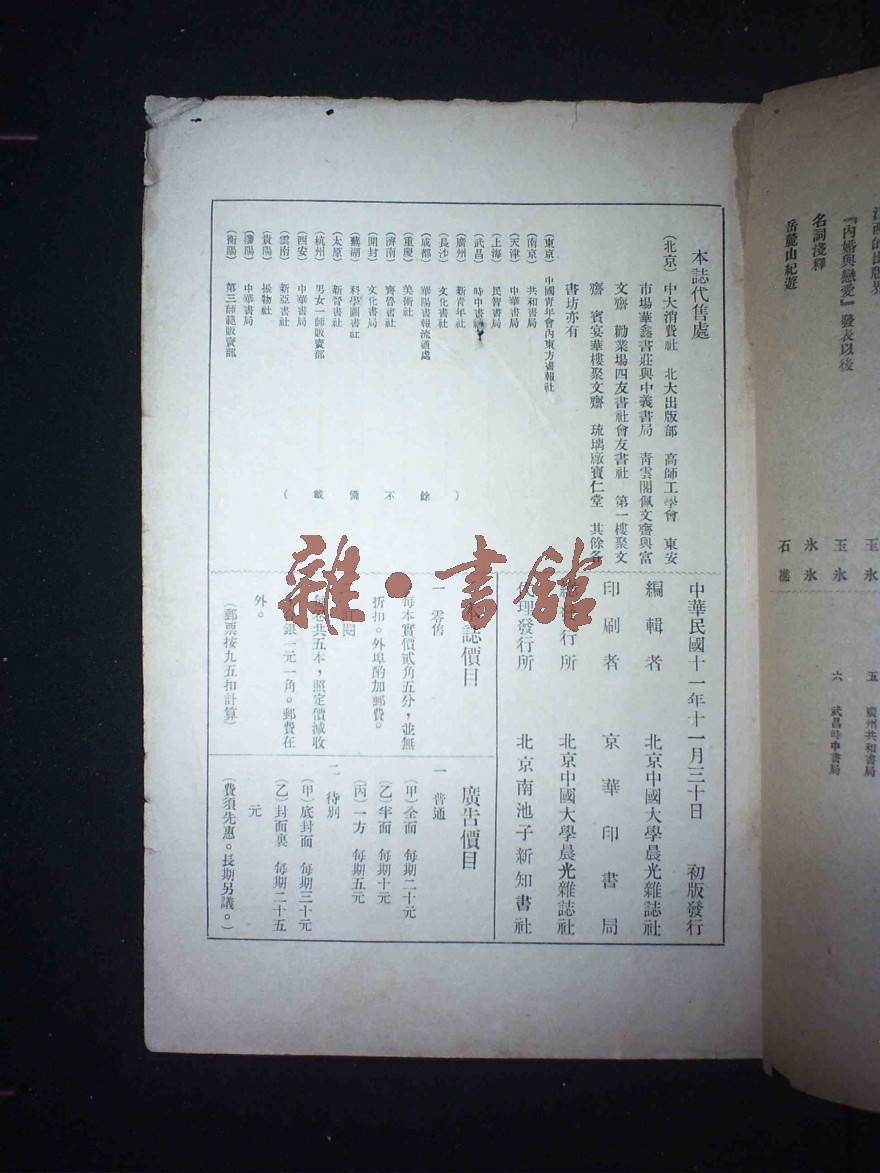 本誌代售處
(北京) 中大消費社 北大出版部 高師工學會 東安
市場華鑫書莊與中義書局 青雲閣佩文齋與富
文齋 勸業場四友書社會友書社 第一樓聚文
齋 賓宴華樓聚文齋 琉璃廠寶仁堂 其餘各
書坊亦有
(東京) 中國青年會內東方書報社
(南京) 共和書局
(天津) 中華書局
(上海) 民智書局
(武昌) 時中書
(廣州) 新青年社
(長沙) 文化書社
(成都) 華陽書報流通處
(重慶) 美術社
(濟南) 齊魯書社
(開封) 文化書局
(蕪湖) 科學圖書社
(太原) 新晉書社
(杭州) 男女一師販賣部
(西安) 中華書局
(雲南) 新亞書社
(貴陽)
(瀋陽) 中華書局
(衡陽) 第三師範販賣部
(餘不備載)
中華民國十一年十一月三十日 初版發行
編輯者 北京中國大學晨光雜誌社
印刷者 京華印書局
發行所 北京中國大學晨光雜誌社
代理發行所 北京南池子新知書社
本誌價目
一 零售
每本實價貳角五分，並無
折扣。外埠酌加郵費。
閱
共五本，照定價減收
銀一元一角。郵費在
外。
(郵票按九五扣計算)
廣告價目
一 普通
(甲)全面 每期二十元
(乙)半面 每期十元
(丙)一方 每期五元
二 特別
(甲)底封面 每期三十元
(乙)封面裏 每期二十五
元
(費須先惠。長期另議。)
『內婚與戀愛』發表以後
名詞淺釋
岳麓山紀遊
玉氷
玉氷
氷氷
石樵
五 廣州共和書局
六 武昌時中書局
雜·書館